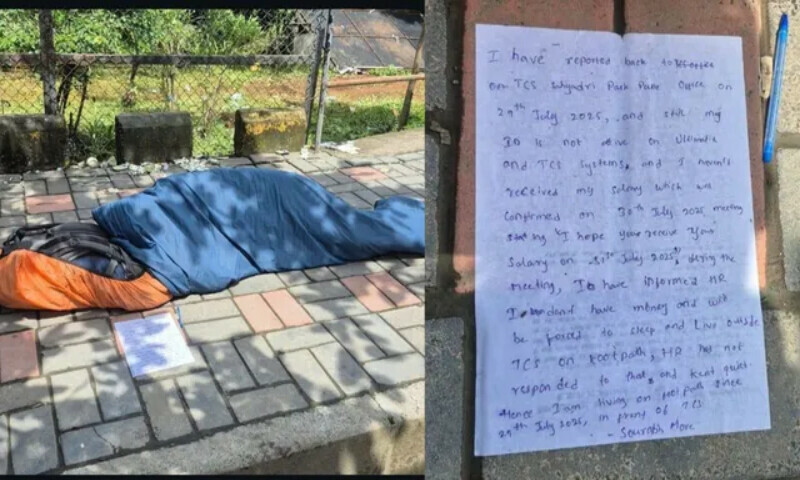 I have reported back to office
on TCS Sahyadri Park Pune Office on
29th July 2025, and still my
ID is not active on Ultimatix
and TCS systems, and I haven't
received my salary which was
confirmed on 30th July 2025 meeting
"I hope you receive your
Salary on 31st July 2025", during the
meeting, I have informed HR
I dont have money and will
be forced to sleep and Live outside
TCS on footpath, HR has not
responded to that, and kept quiet.
Hence I am living on footpath since
29th July 2025, in front of TCS
- Saurabh More